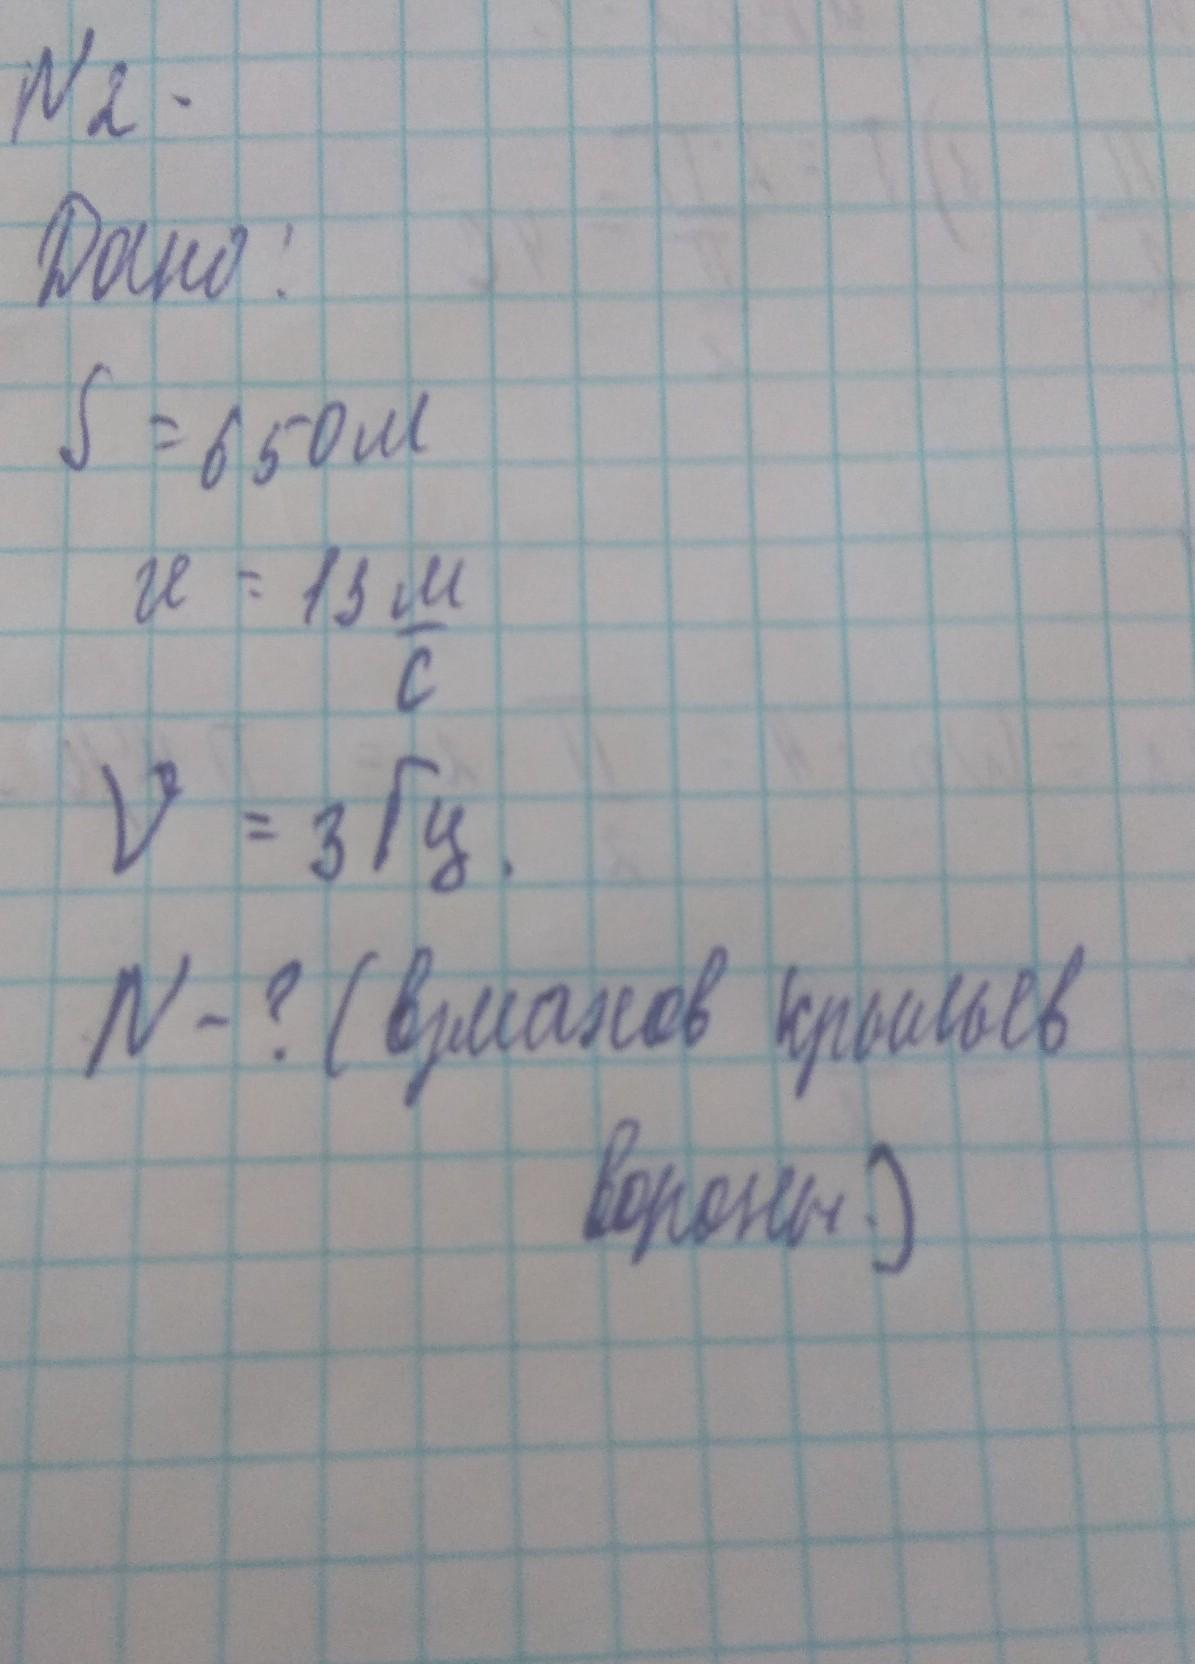 N 2.
Дано:
S = 650м
u = 13 м/с
V = 3 Гц.
N - ? (взмахов крыльев
вороны.)